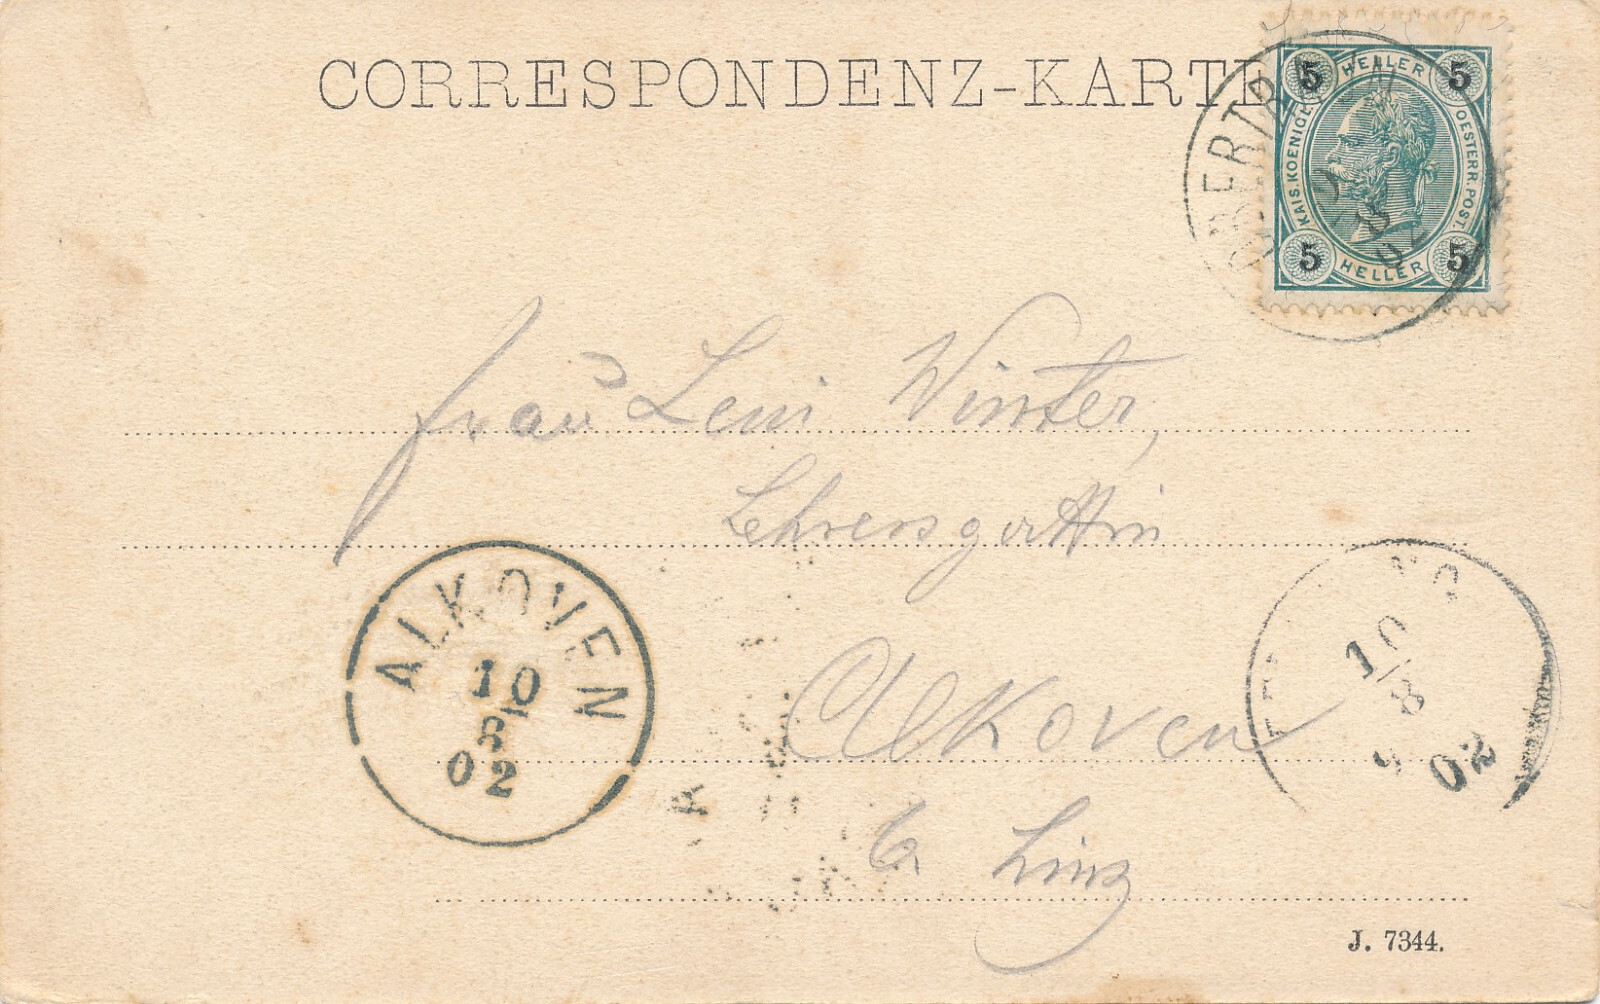 CORRESPONDENZ-KARTE
5 HELLER 5
KAIS. KOENIGL. OESTERR. POST.
5 HELLER 5
Frau Leni Winter,
Lehrersgattin
Alkoven
b. Linz
ALKOVEN
10
8
02
10
8
02
J. 7344.